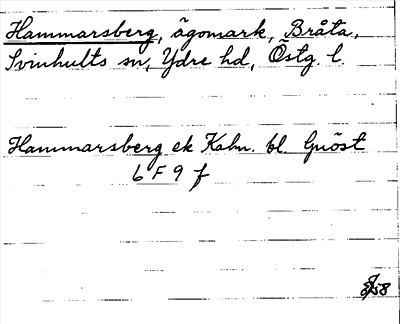 Hammarsberg, ägomark, Bråta,
Svinhults sn, Ydre hd, Östg. l.
Hammarsberg ek Kabn. bl. Gnöst
6 F 9 f